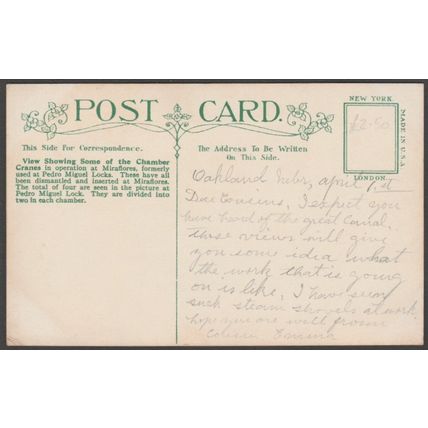 POST CARD.
NEW YORK
MADE IN U.S.A.
LONDON.
£2.50
This Side For Correspondence.
View Showing Some of the Chamber
Cranes in operation at Miraflores, formerly
used at Pedro Miguel Locks. These have all
been dismantled and inserted at Miraflores.
The total of four are seen in the picture at
Pedro Miguel Lock. They are divided into
two in each chamber.
The Address To Be Written
On This Side.
Oakland Nebr, april 1st
Dear Cousins, I expect you
have heard of the great Canal.
these views will give
you some idia what
the work that is going
on is like, I have seen
such steam shovels at work.
hope you are well from
Cousin Emma